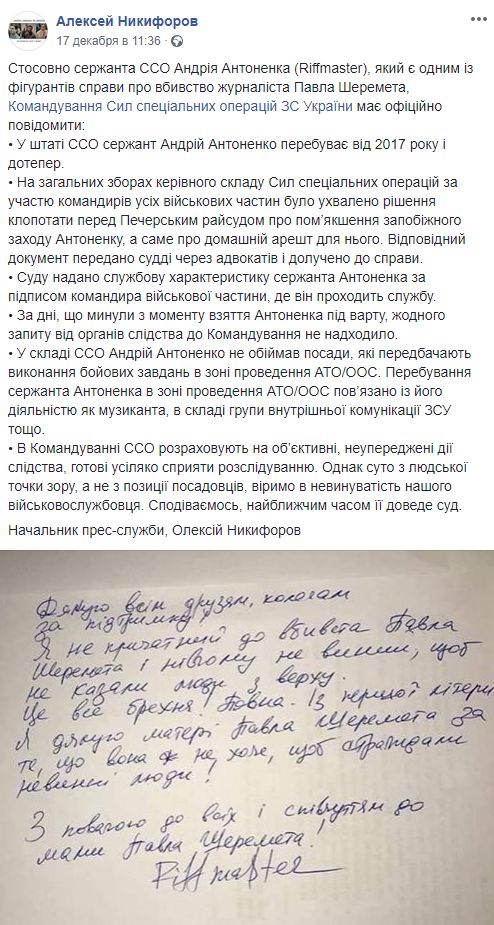 Алексей Никифоров
17 декабря в 11:36 ·
Стосовно сержанта ССО Андрія Антоненка (Riffmaster), який є одним із
фігурантів справи про вбивство журналіста Павла Шеремета,
Командування Сил спеціальних операцій ЗС України має офіційно
повідомити:
• У штаті ССО сержант Андрій Антоненко перебуває від 2017 року і
дотепер.
• На загальних зборах керівного складу Сил спеціальних операцій за
участю командирів усіх військових частин було ухвалено рішення
клопотати перед Печерським райсудом про пом’якшення запобіжного
заходу Антоненку, а саме про домашній арешт для нього. Відповідний
документ передано судді через адвокатів і долучено до справи.
• Суду надано службову характеристику сержанта Антоненка за
підписом командира військової частини, де він проходить службу.
• За дні, що минули з моменту взяття Антоненка під варту, жодного
запиту від органів слідства до Командування не надходило.
• У складі ССО Андрій Антоненко не обіймав посади, які передбачають
виконання бойових завдань в зоні проведення АТО/ООС. Перебування
сержанта Антоненка в зоні проведення АТО/ООС пов’язано із його
діяльністю як музиканта, в складі групи внутрішньої комунікації ЗСУ
тощо.
• В Командуванні ССО розраховують на об’єктивні, неупереджені дії
слідства, готові усіляко сприяти розслідуванню. Однак суто з людської
точки зору, а не з позиції посадовців, віримо в невинуватість нашого
військовослужбовця. Сподіваємось, найближчим часом її доведе суд.
Начальник прес-служби, Олексій Никифоров
Дякую всім друзям, колегам
за підтримку!
Я не причатний до вбивста Павла
Шеремета і нівчому не винин, щоб
не казали люди з верху.
Це все брехня! Повна. Із першої літери
Я дякую матері Павла Шеремета за
те, що вона не хоче, щоб страждали
невинні люди!
З повагою до всіх і співчуттям до
мами Павла Шеремета!
Riffmaster